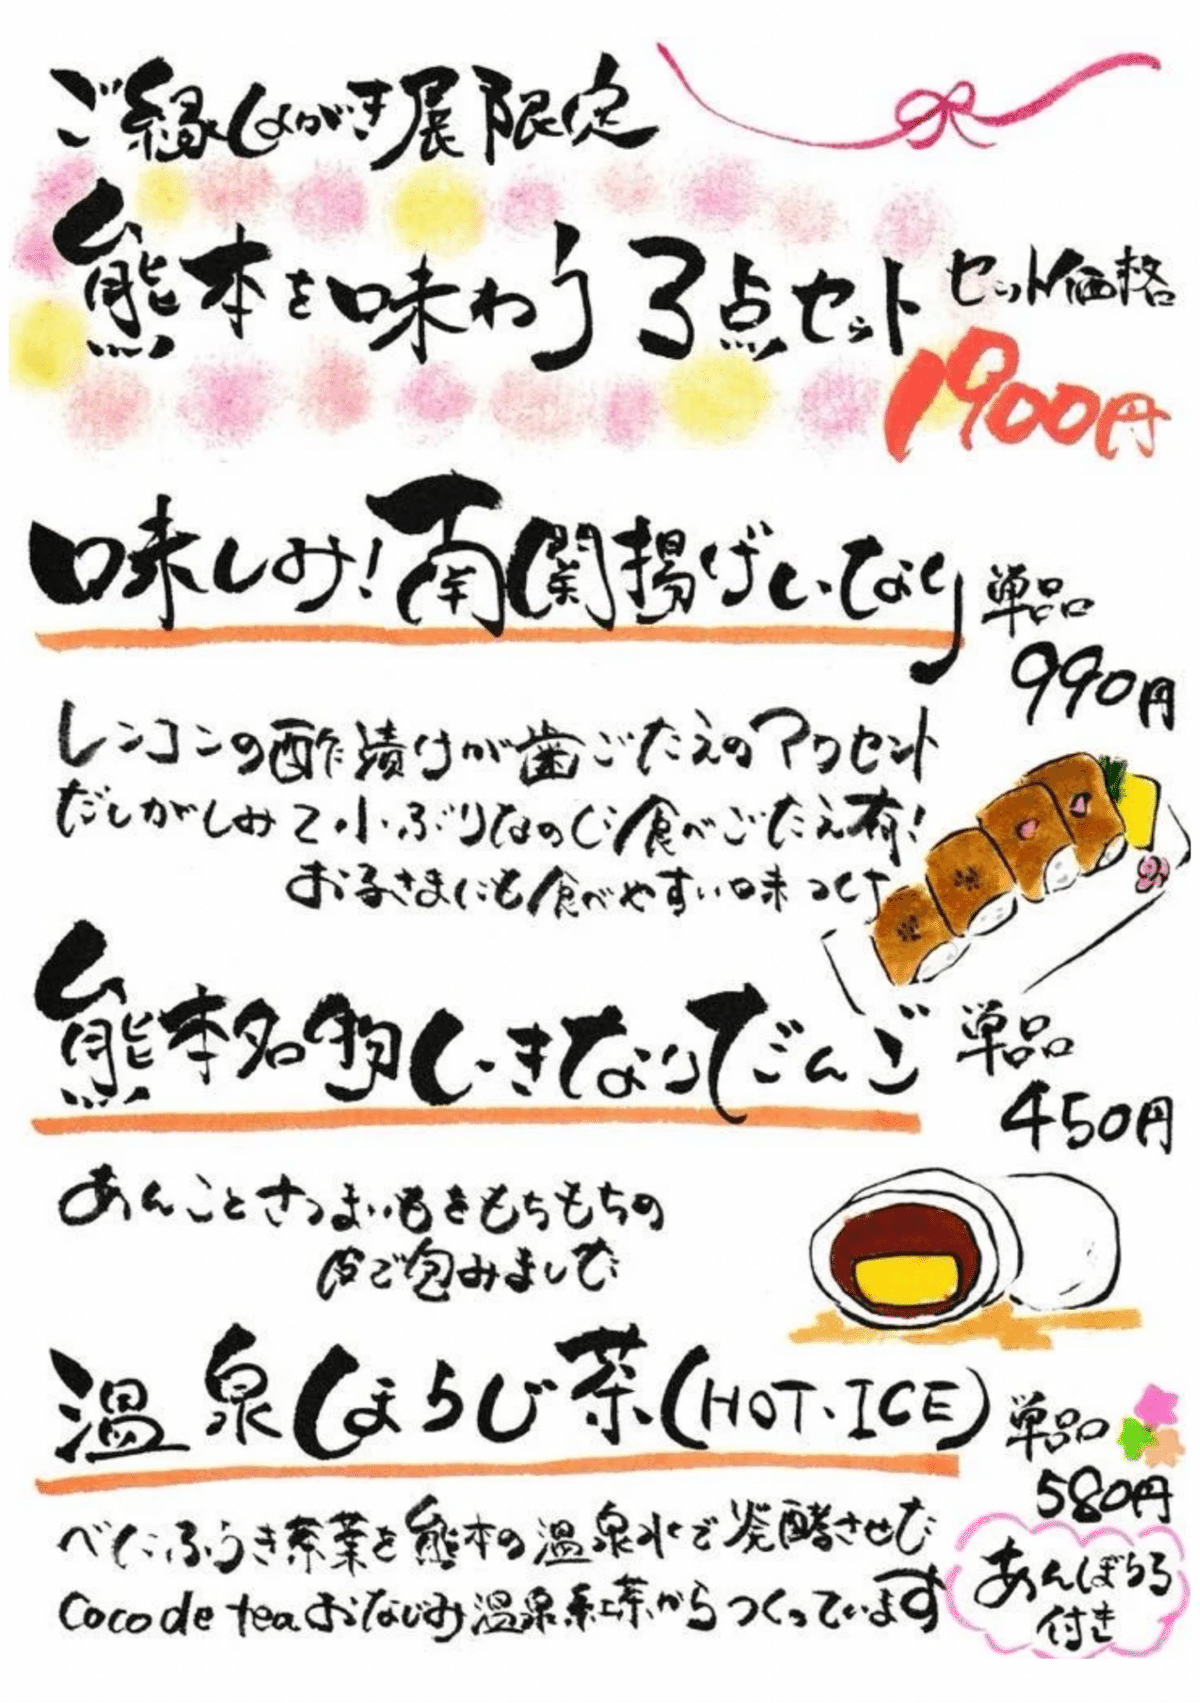 ご縁しながき展限定
熊本を味わう3点セット
セット価格
1900円
味しみ!南関揚げいなり
単品
990円
レンコンの酢漬けが歯ごたえのアクセント
だしがしみて小ぶりなのに食べごたえ有!
お子さまにも食べやすい味つけ
熊本名物いきなりだんご
単品
450円
あんことさつまいもをもちもちの
皮で包みました
温泉ほうじ茶(HOT・ICE)
単品
580円
べにふうき茶葉を熊本の温泉水で発酵させた
Coco de teaおなじみ温泉紅茶からつくっています
あんぽらる
付き